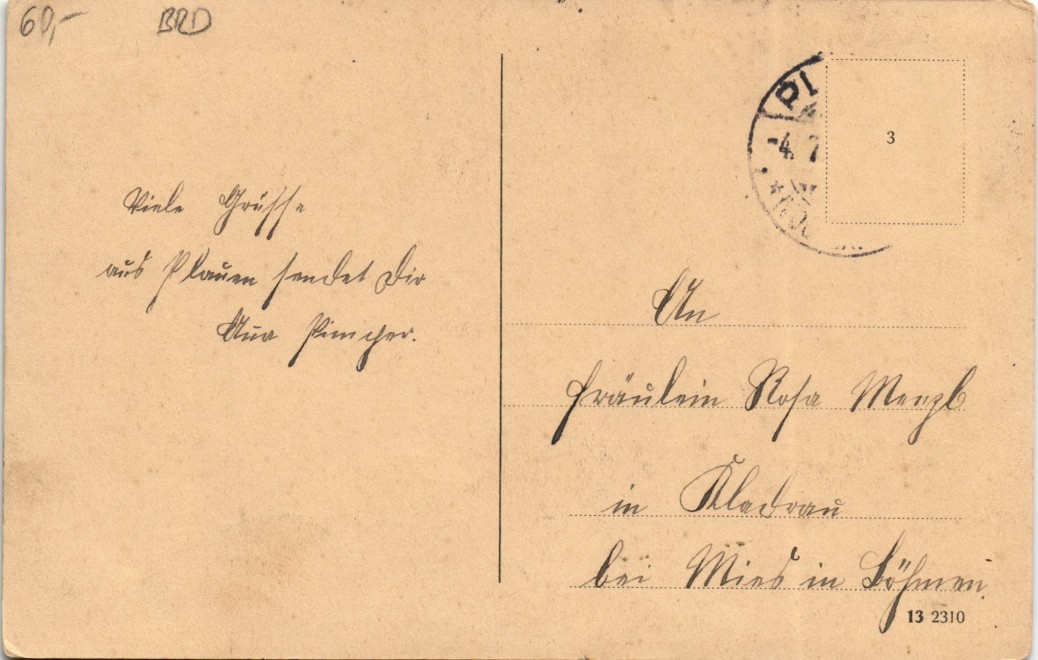 60,- BRD
Viele Grüsse
aus Plauen sendet Dir
PL
-4. 7
3
An
Fräulein Rosa
in Kladrau
bei Mies in Böhmen.
13 2310